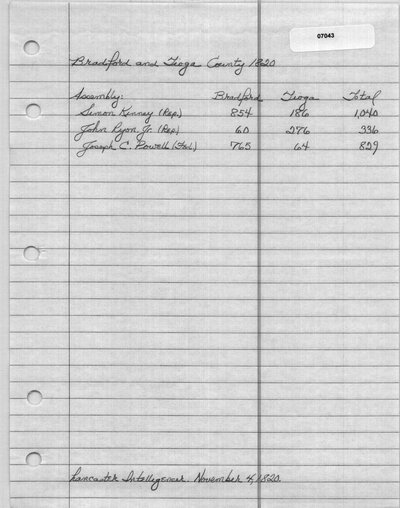 07043
Bradford and Tioga County 1820
Assembly: Bradford Tioga Total
Simon Kinney (Rep.) 854 186 1,040
John Ryon Jr. (Rep.) 60 276 336
Joseph C. Powell (Fed.) 765 64 829
Lancaster Intelligencer. November 4, 1820.